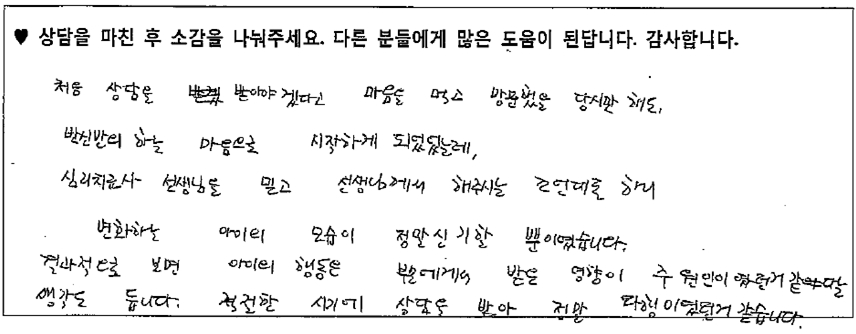 ♥ 상담을 마친 후 소감을 나눠주세요. 다른 분들에게 많은 도움이 된답니다. 감사합니다.
처음 상담을 받아야 겠다고 마음을 먹고 방문했을 당시만 해도,
반신반의 하는 마음으로 시작하게 되었었는데,
심리치료사 선생님을 믿고 선생님께서 해주시는 조언대로 하니
변화하는 아이의 모습이 정말 신기할 뿐이였습니다.
결과적으로 보면 아이의 행동은 부모에게서 받은 영향이 주 원인이 였던거 같다는
생각도 듭니다. 적절한 시기에 상담을 받아 정말 다행이였던거 같습니다.